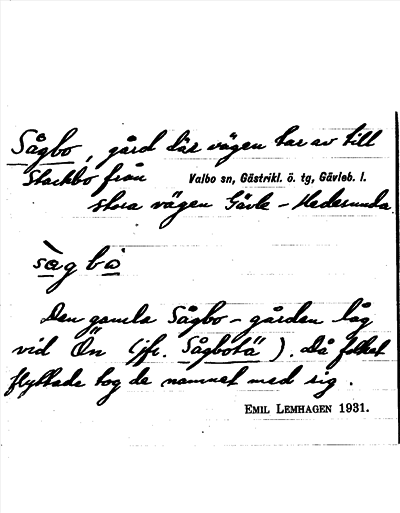 Sågbo, gård där vägen tar av till
Stackbo från Valbo sn, Gästrikl. ö. tg, Gävleb. l.
stora vägen Gävle – Hedesunda.
Den gamla Sågbo-gården låg
vid Ön (jfr. Sågbotä). Då folket
flyttade tog de namnet med sig.
EMIL LEMHAGEN 1931.